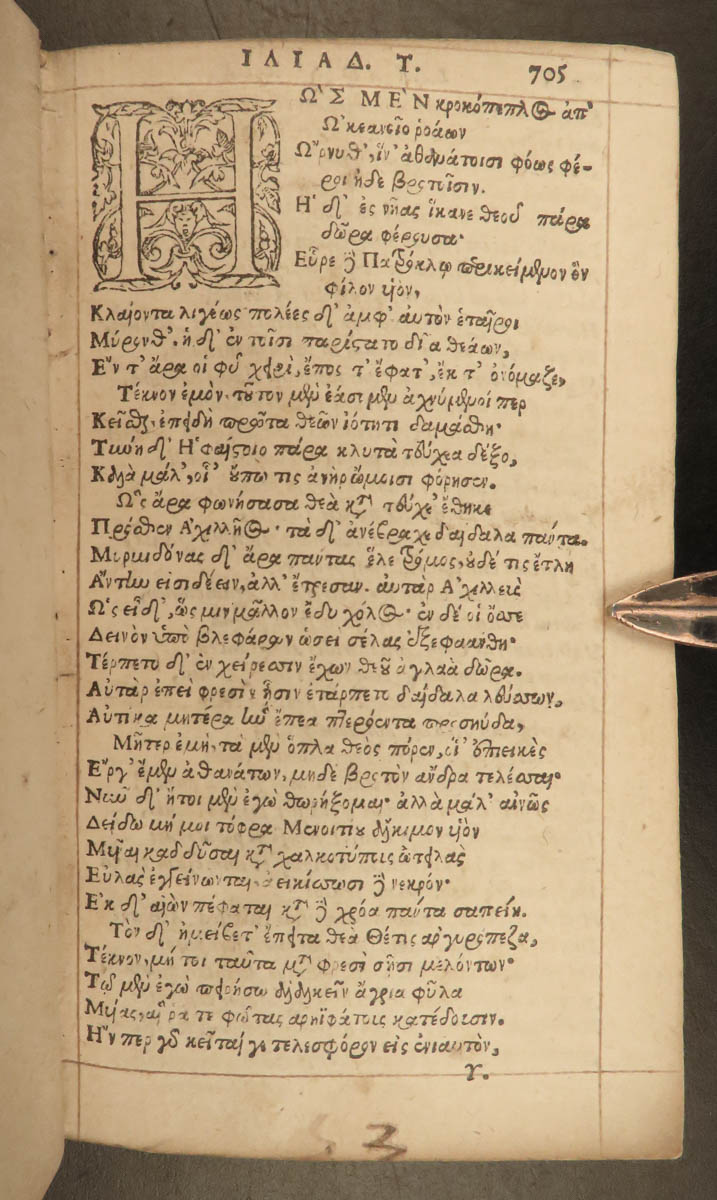 ΙΛΙΑΔ. Τ. 705
ΩΣ ΜΕΝ κροκόπεπλος ἀπ'
Ὠκεανοῖο ῥοάων
Ὤρνυθ', ἵν' ἀθανάτοισι φόως φέ-
ροι ἠδὲ βροτοῖσιν.
Ἡ δ' ἐς νῆας ἵκανε θεοῦ πάρα
δῶρα φέρουσα·
Εὗρε δὲ Πατρόκλῳ περικείμενον ὃν
φίλον υἱὸν,
Κλαίοντα λιγέως· πολέες δ' ἀμφ' αὐτὸν ἑταῖροι
Μύρονθ'. ἡ δ' ἐν τοῖσι παρίστατο δῖα θεάων,
Ἔν τ' ἄρα οἱ φῦ χειρὶ, ἔπος τ' ἔφατ', ἔκ τ' ὀνόμαζε,
Τέκνον ἐμὸν, τοῦτον μὲν ἐάσομεν ἀχνύμενοί περ
Κεῖσθαι, ἐπειδὴ πρῶτα θεῶν ἰότητι δαμάσθη·
Τύνη δ' Ἡφαίστοιο πάρα κλυτὰ τεύχεα δέξο,
Καλὰ μάλ', οἷ' οὔπω τις ἀνὴρ ὤμοισι φόρησεν.
Ὣς ἄρα φωνήσασα θεὰ κατὰ τεύχε' ἔθηκε
Πρόσθεν Ἀχιλλῆος· τὰ δ' ἀνέβραχε δαίδαλα πάντα.
Μυρμιδόνας δ' ἄρα πάντας ἕλε τρόμος, οὐδέ τις ἔτλη
Ἄντην εἰσιδέειν, ἀλλ' ἔτρεσαν. αὐτὰρ Ἀχιλλεὺς
Ὡς εἶδ', ὥς μιν μᾶλλον ἔδυ χόλος· ἐν δέ οἱ ὄσσε
Δεινὸν ὑπὸ βλεφάρων ὡσεὶ σέλας ἐξεφαάνθη·
Τέρπετο δ' ἐν χείρεσσιν ἔχων θεοῦ ἀγλαὰ δῶρα.
Αὐτὰρ ἐπεὶ φρεσὶν ᾗσιν ἐτάρπετο δαίδαλα λεύσσων,
Αὐτίκα μητέρα ἣν ἔπεα πτερόεντα προσηύδα,
Μῆτερ ἐμὴ, τὰ μὲν ὅπλα θεὸς πόρεν, οἷ' ἐπιεικὲς
Ἔργ' ἔμεν ἀθανάτων, μηδὲ βροτὸν ἄνδρα τελέσσαι·
Νῦν δ' ἤτοι μὲν ἐγὼ θωρήξομαι· ἀλλὰ μάλ' αἰνῶς
Δείδω μή μοι τόφρα Μενοιτίου ἄλκιμον υἱὸν
Μυῖαι καδδῦσαι κατὰ χαλκοτύπους ὠτειλὰς
Εὐλὰς ἐγγείνωνται, ἀεικίσσωσι δὲ νεκρόν·
Ἐκ δ' αἰὼν πέφαται κατὰ δὲ χρόα πάντα σαπείη.
Τὸν δ' ἠμείβετ' ἔπειτα θεὰ Θέτις ἀργυρόπεζα,
Τέκνον, μή τοι ταῦτα μετὰ φρεσὶ σῇσι μελόντων·
Τῷ μὲν ἐγὼ πειρήσω ἀλαλκεῖν ἄγρια φῦλα
Μυίας, αἵ ῥά τε φῶτας ἀρηϊφάτους κατέδουσιν.
Ἤν περ γὰρ κεῖταί γε τελεσφόρον εἰς ἐνιαυτὸν,
Υ.